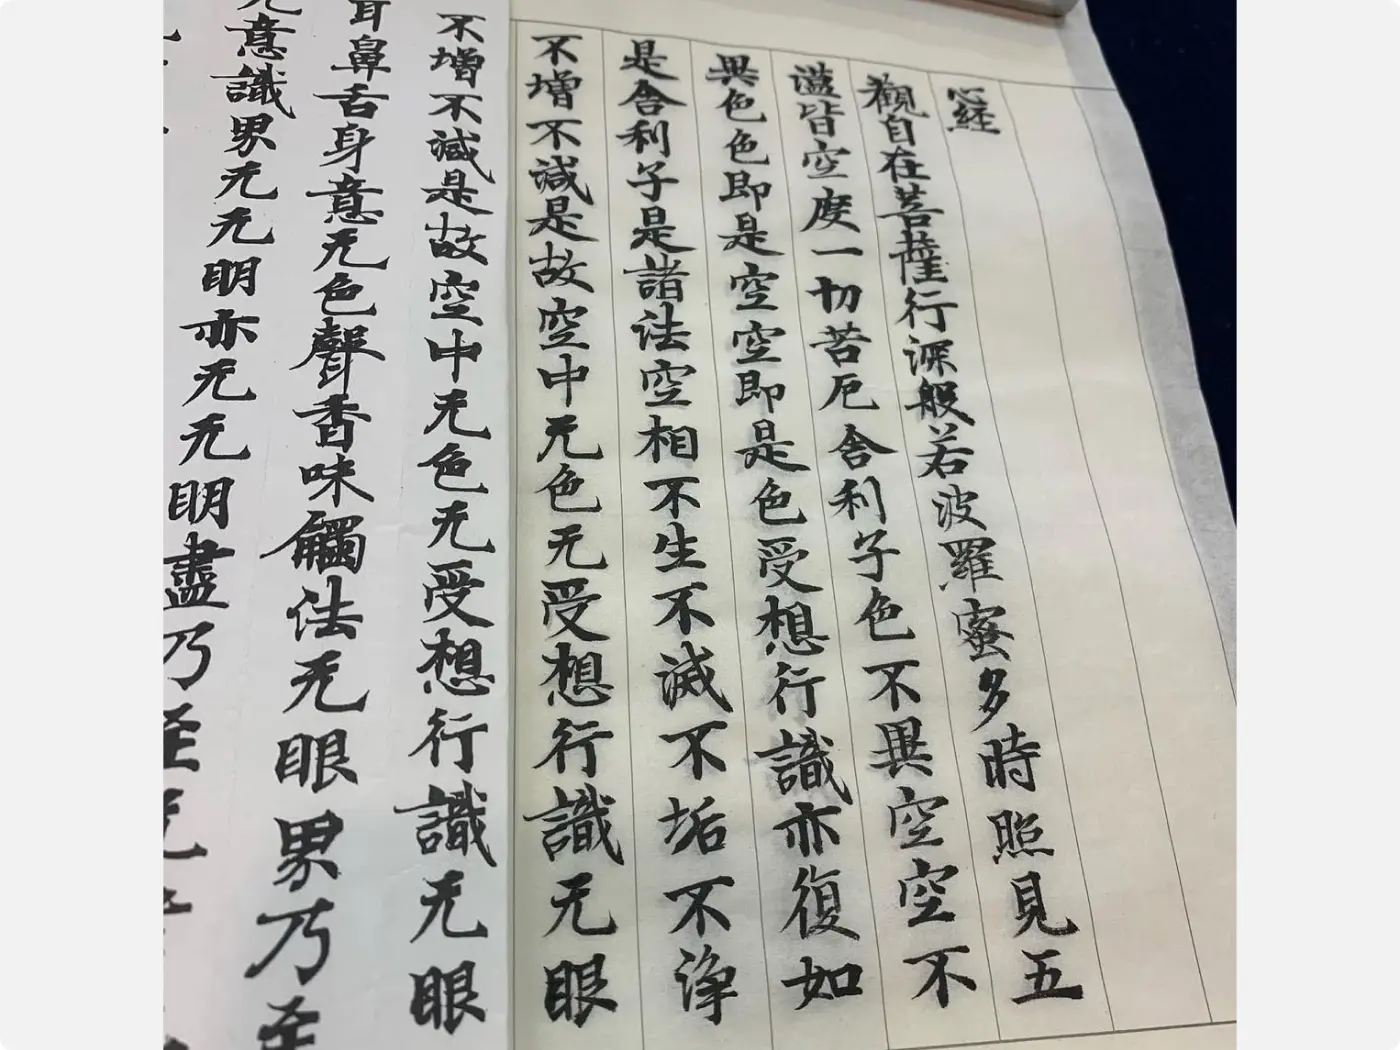 心経
觀自在菩薩行深般若波羅蜜多時照見五
蘊皆空度一切苦厄舍利子色不異空空不
異色色即是空空即是色受想行識亦復如
是舍利子是諸法空相不生不滅不垢不淨
不增不減是故空中无色无受想行識无眼
不增不減是故空中无色无受想行識无眼
耳鼻舌身意无色聲香味觸法无眼界乃至
无意識界无无明亦无无明盡乃至无